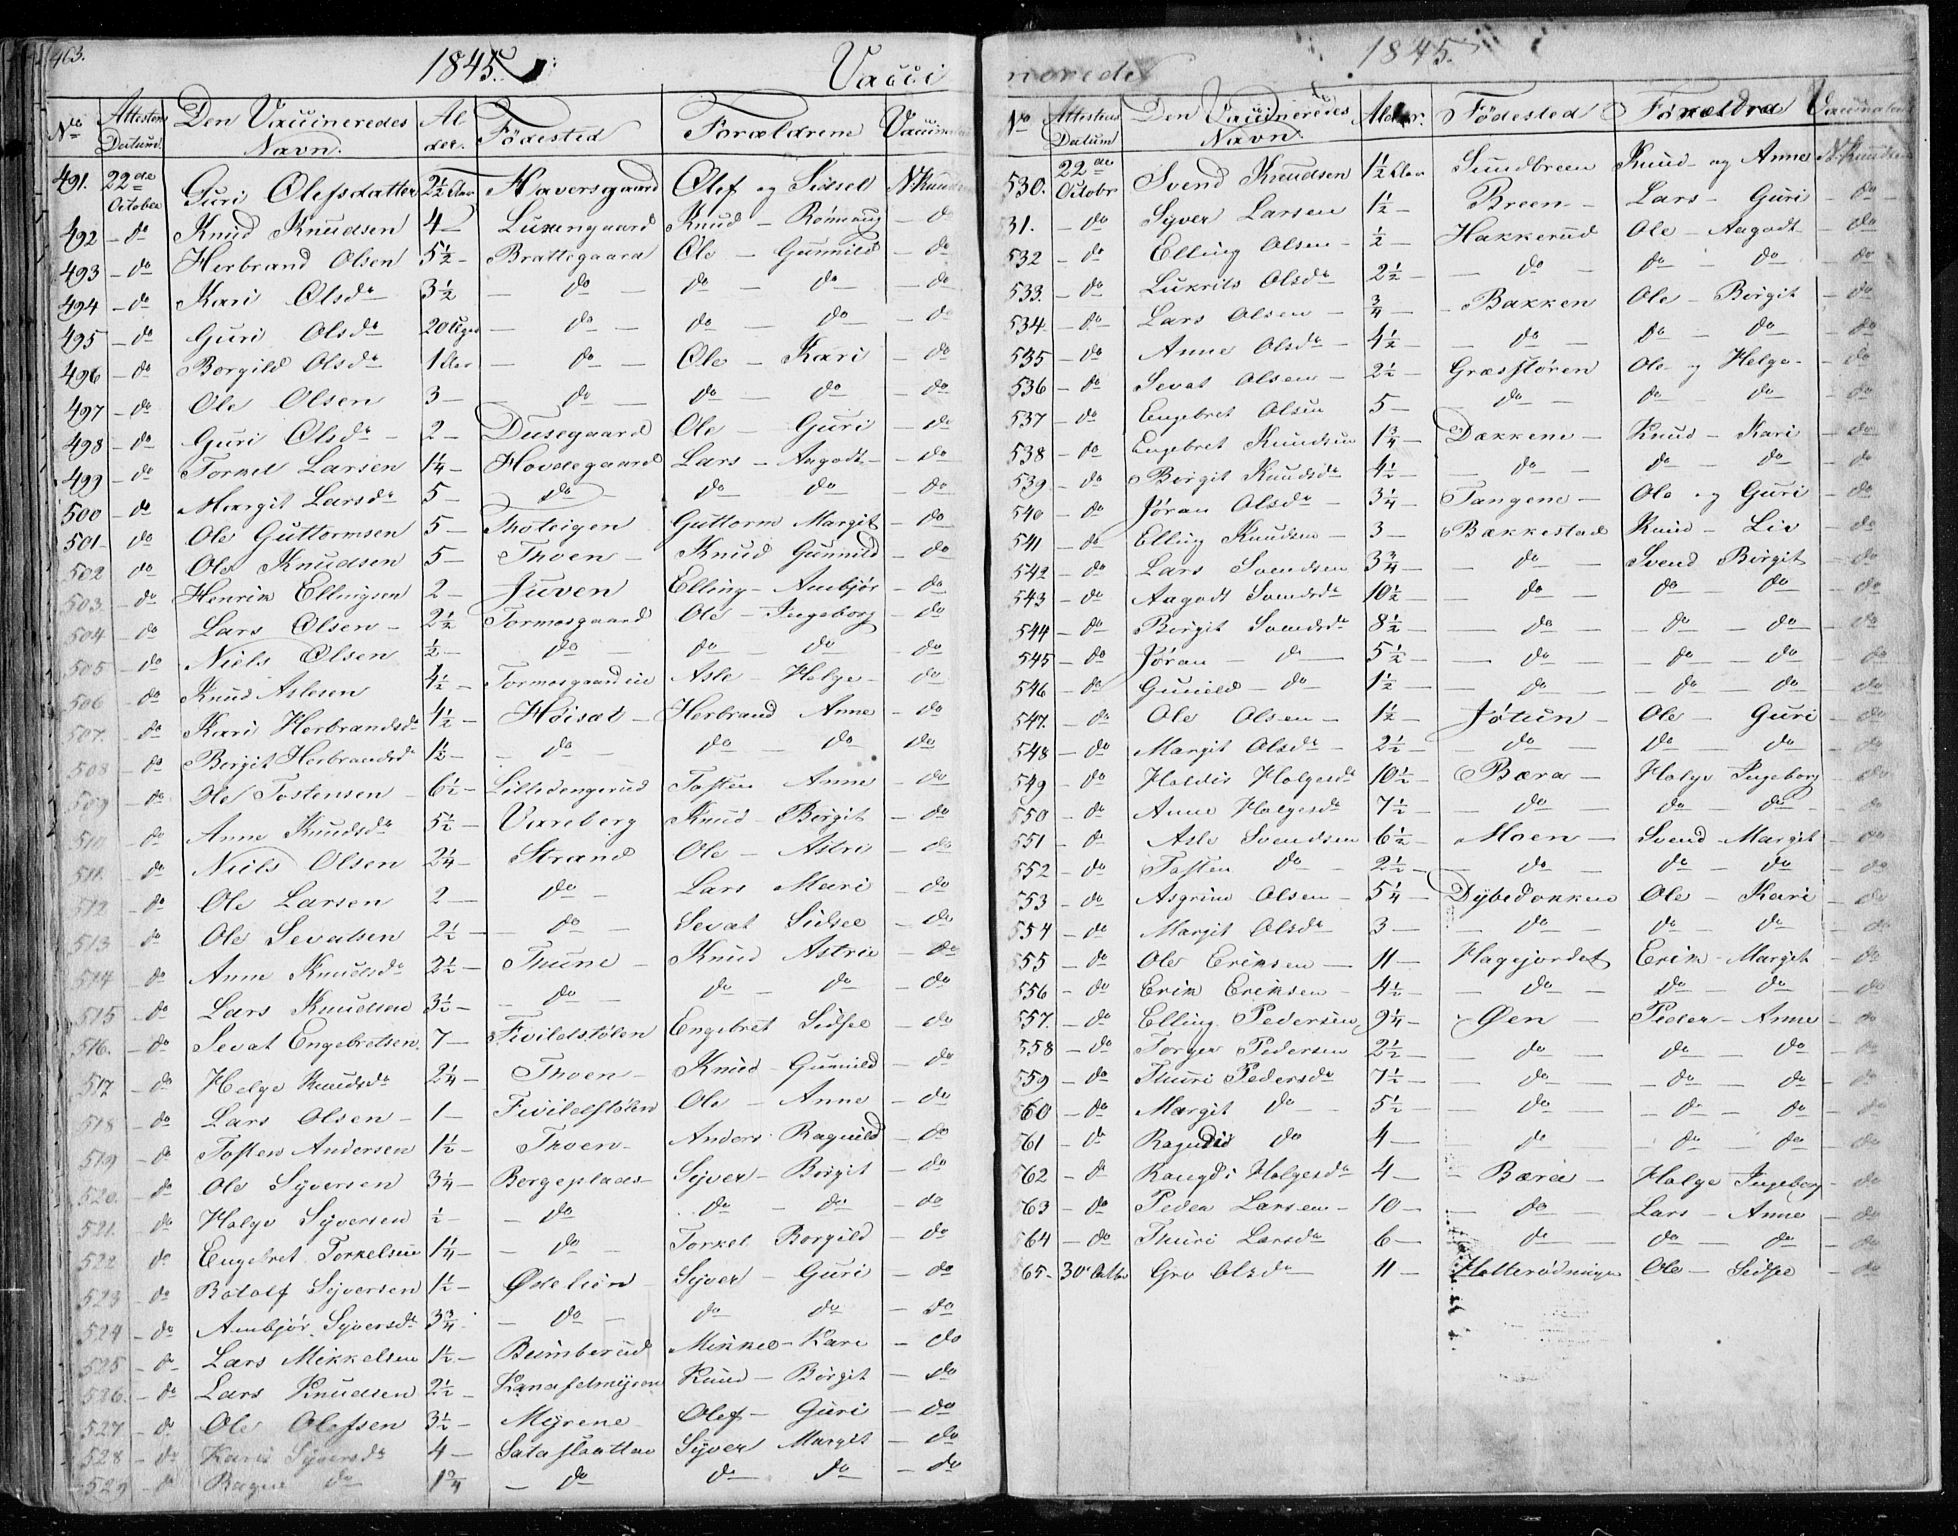 463.
1845.
Vacci
No Attestens Datum. Den Vaccineredes Navn. Alder. Födested Forældrene Vaccinateur
491. 22de October Guri Olefsdatter 2½ Aar Haversgaard Olef og Sidsel N. Knudsen
492 - do Knud Knudsen 4 - Luxengaard Knud - Römaug - do
493 - do Herbrand Olsen 5½ - Brattegaard Ole - Gunnild - do
494 - do Kari Olsdr 3½ - do - do - do - do
495 - do Guri Olsdr 20 Uger - do - do - do - do
496 - do Borgild Olsdr 1 Aar - do - Ole - Kari - do
497 - do Ole Olsen 3 - - do - do - do - do
498 - do Guri Olsdr - 2 - Dusegaard Ole - Guri - do
499 - do Torkel Larsen 1¼ - Hovdegaard Lars - Aagodt - do
500 - do Margit Larsdr 5 - do do do - do
501 - do Ole Guttormsen 5 - Tholeigen Guttorm Margit - do
502 do Ole Knudsen 5 - Thoen - Knud Gunnild - do
503. - do Henrik Ellingsen 2 - Juven Elling - Ambjör - do
504 - do Lars Olsen - 2½ - Tormosgaard Ole - Ingeborg - do
505 - do Niels Olsen ½ - do - do - do - do
506 - do Knud Aslesen 4½ - Tormosgaard eie Asle - Helge - do
507. - do Kari Herbrandsdr 4½ - Höisæt - Herbrand Anne - do
508 - do Birgit Herbrandsdr 1½ - - do - do - do do
509 - do Ole Tostensen - 6½ - Lilledengerud Tosten Anne - do
510 - do Anne Knudsdr 5½ - Vareberg Knud - Birgit - do
511. - do Niels Olsen 2¼ - Strand Ole - Astri - do
512 - do Ole Larsen 2 - do - Lars Mari - do
513 - do Ole Sevatsen 2½ - - do - Sevat Sidsel - do
514 - do Anne Knudsdr 2½ - Thune - Knud Astrie - do
515 - do Lars Knudsen 3½ - - do - do - do - do
516. - do Sevat Engebretsen 7 - Fivildstölen Engebret Sidsel - do
517 - do Helge Knudsdr 2¼ - Thoen - Knud - Gunnild - do
518 - do Lars Olsen - 1 - Fivildstölen Ole - Anne - do
519 - do Tosten Andersen 1½ - Thoen - Anders Ragnild - do
520. - do Ole Syversen 3¼ - Borgeplads - Syver - Birgit - do
521. do Helge Syversen ½ - - do do - do - do
522 do Engebret Torkelsen 1¼ - - do - Torkel Borgild - do
523 - do Botolf Syversen 1½ - Ödelien - Syver - Guri - do
524 - do Ambjör Syversdr 3¾ - do - do do - do
525 - do Lars Mikkelsen 1½ - Bumberud Mikkel - Kari - do
526. - do Lars Knudsen 2½ - Knud - Birgit - do
527 - do Ole Olefsen 3½ - Myrene Olef - Guri - do
528 - do Kari Syversdr 4 - Sataslaatten Syver Margit - do
529 - do Ragne do 1¾ - do do do - do
1845.
nerede
No Attestens Datum Den Vaccineredes Navn Alder. Födested Forældre Vaccinateur
530. 22de October Svend Knudsen 1½ Aar Sundbreen Knud - og Anne N. Knudsen
31. - do Syver Larsen 1½ - Breen - Lars - Guri - do
532 - do Elling Olsen - ½ - Hakkerud Ole - Aagodt - do
533. - do Lukrits Olsdr 2½ - - do - do - do - do
534 - do Lars Olsen - ¾ - Bakken Ole - Birgit - do
535 - do Anne Olsdr - 4½ - - do - do - do - do
536 - do Sevat Olsen - 2½ - Græsstören Ole og Helge - do
537 - do Engebret Olsen 5 - do - do - do - do
538 - do Engebret Knudsen 1¾ - Dækkene - Knud - Kari - do
539. - do Birgit Knudsdr 4½ - - do - do - do - do
540 - do Jöran Olsdr - 3¼ - Tangene - Ole og Guri - do
541 - do Elling Knudsen - 3 - Bækkestad Knud - Liv - do
542 - do Lars Svendsen 3¾ - - do - Svend Birgit - do
543 - do Aagodt Svendsdr 10½ - do - do do - do
544 - do Birgit Svendsdr 8½ - - do - - do - do - do
545 - do Jöran - do - 5½ - - do - do - do - do
546 - do Gunild - do - 1½ - - do - do - do - do
547. - do Ole Olsen - 1½ - Jötun - Ole - Guri - do
548 - do Margit Olsdr - 2½ - do - do do - do
549 - do Haldis Helgesdr 10½ - Bæra - Helge Ingeborg - do
550 - do Anne Helgesdr 7½ - - do - do - do - do
551 - do Asle Svendsen 6½ - Moen - Svend - Margit - do
552 - do Tosten do - 2½ - - do - do - do - do
553 - do Asgrim Olsen - 5¼ - Dybedokken Ole - Kari - do
554 - do Margit Olsdr 3 - - do - do - do - do
555 - do Ole Eriksen - 11 - Hagejordet Erik - Margit - do
556 - do Erik Eriksen - 4½ - - do - do - do - do
557. - do Elling Pedersen 9¼ - Øen - Peder - Anne - do
558 - do Torger Pedersen 2½ - - do - do - do - do
559 - do Thuri Pedersdr 7½ - - do - do - do - do
560 - do Margit do - 5½ - do - do - do - do
561 - do do 4 - do - do - do - do
562 - do Rangdi Helgesdr 4 - Bæra - Helge Ingeborg - do
563 - do Peder Larsen - 10 - do - Lars - Anne - do
564 - do Thuri Larsdr 6 - do - do - do - do
565 - 30 Octbr Gro Olsdr 11 - Ole - Sidsel - do